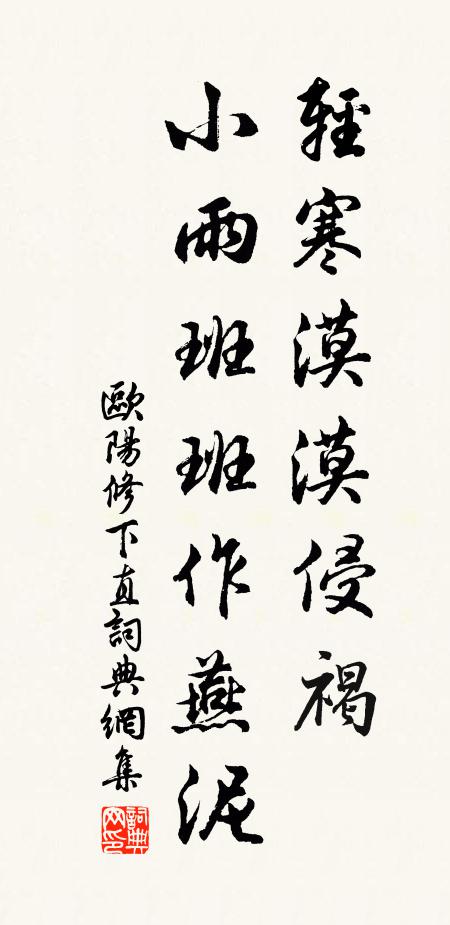 輕寒漠漠侵褐
小雨班班作燕泥
歐陽修下直詞典網集
詞典網印